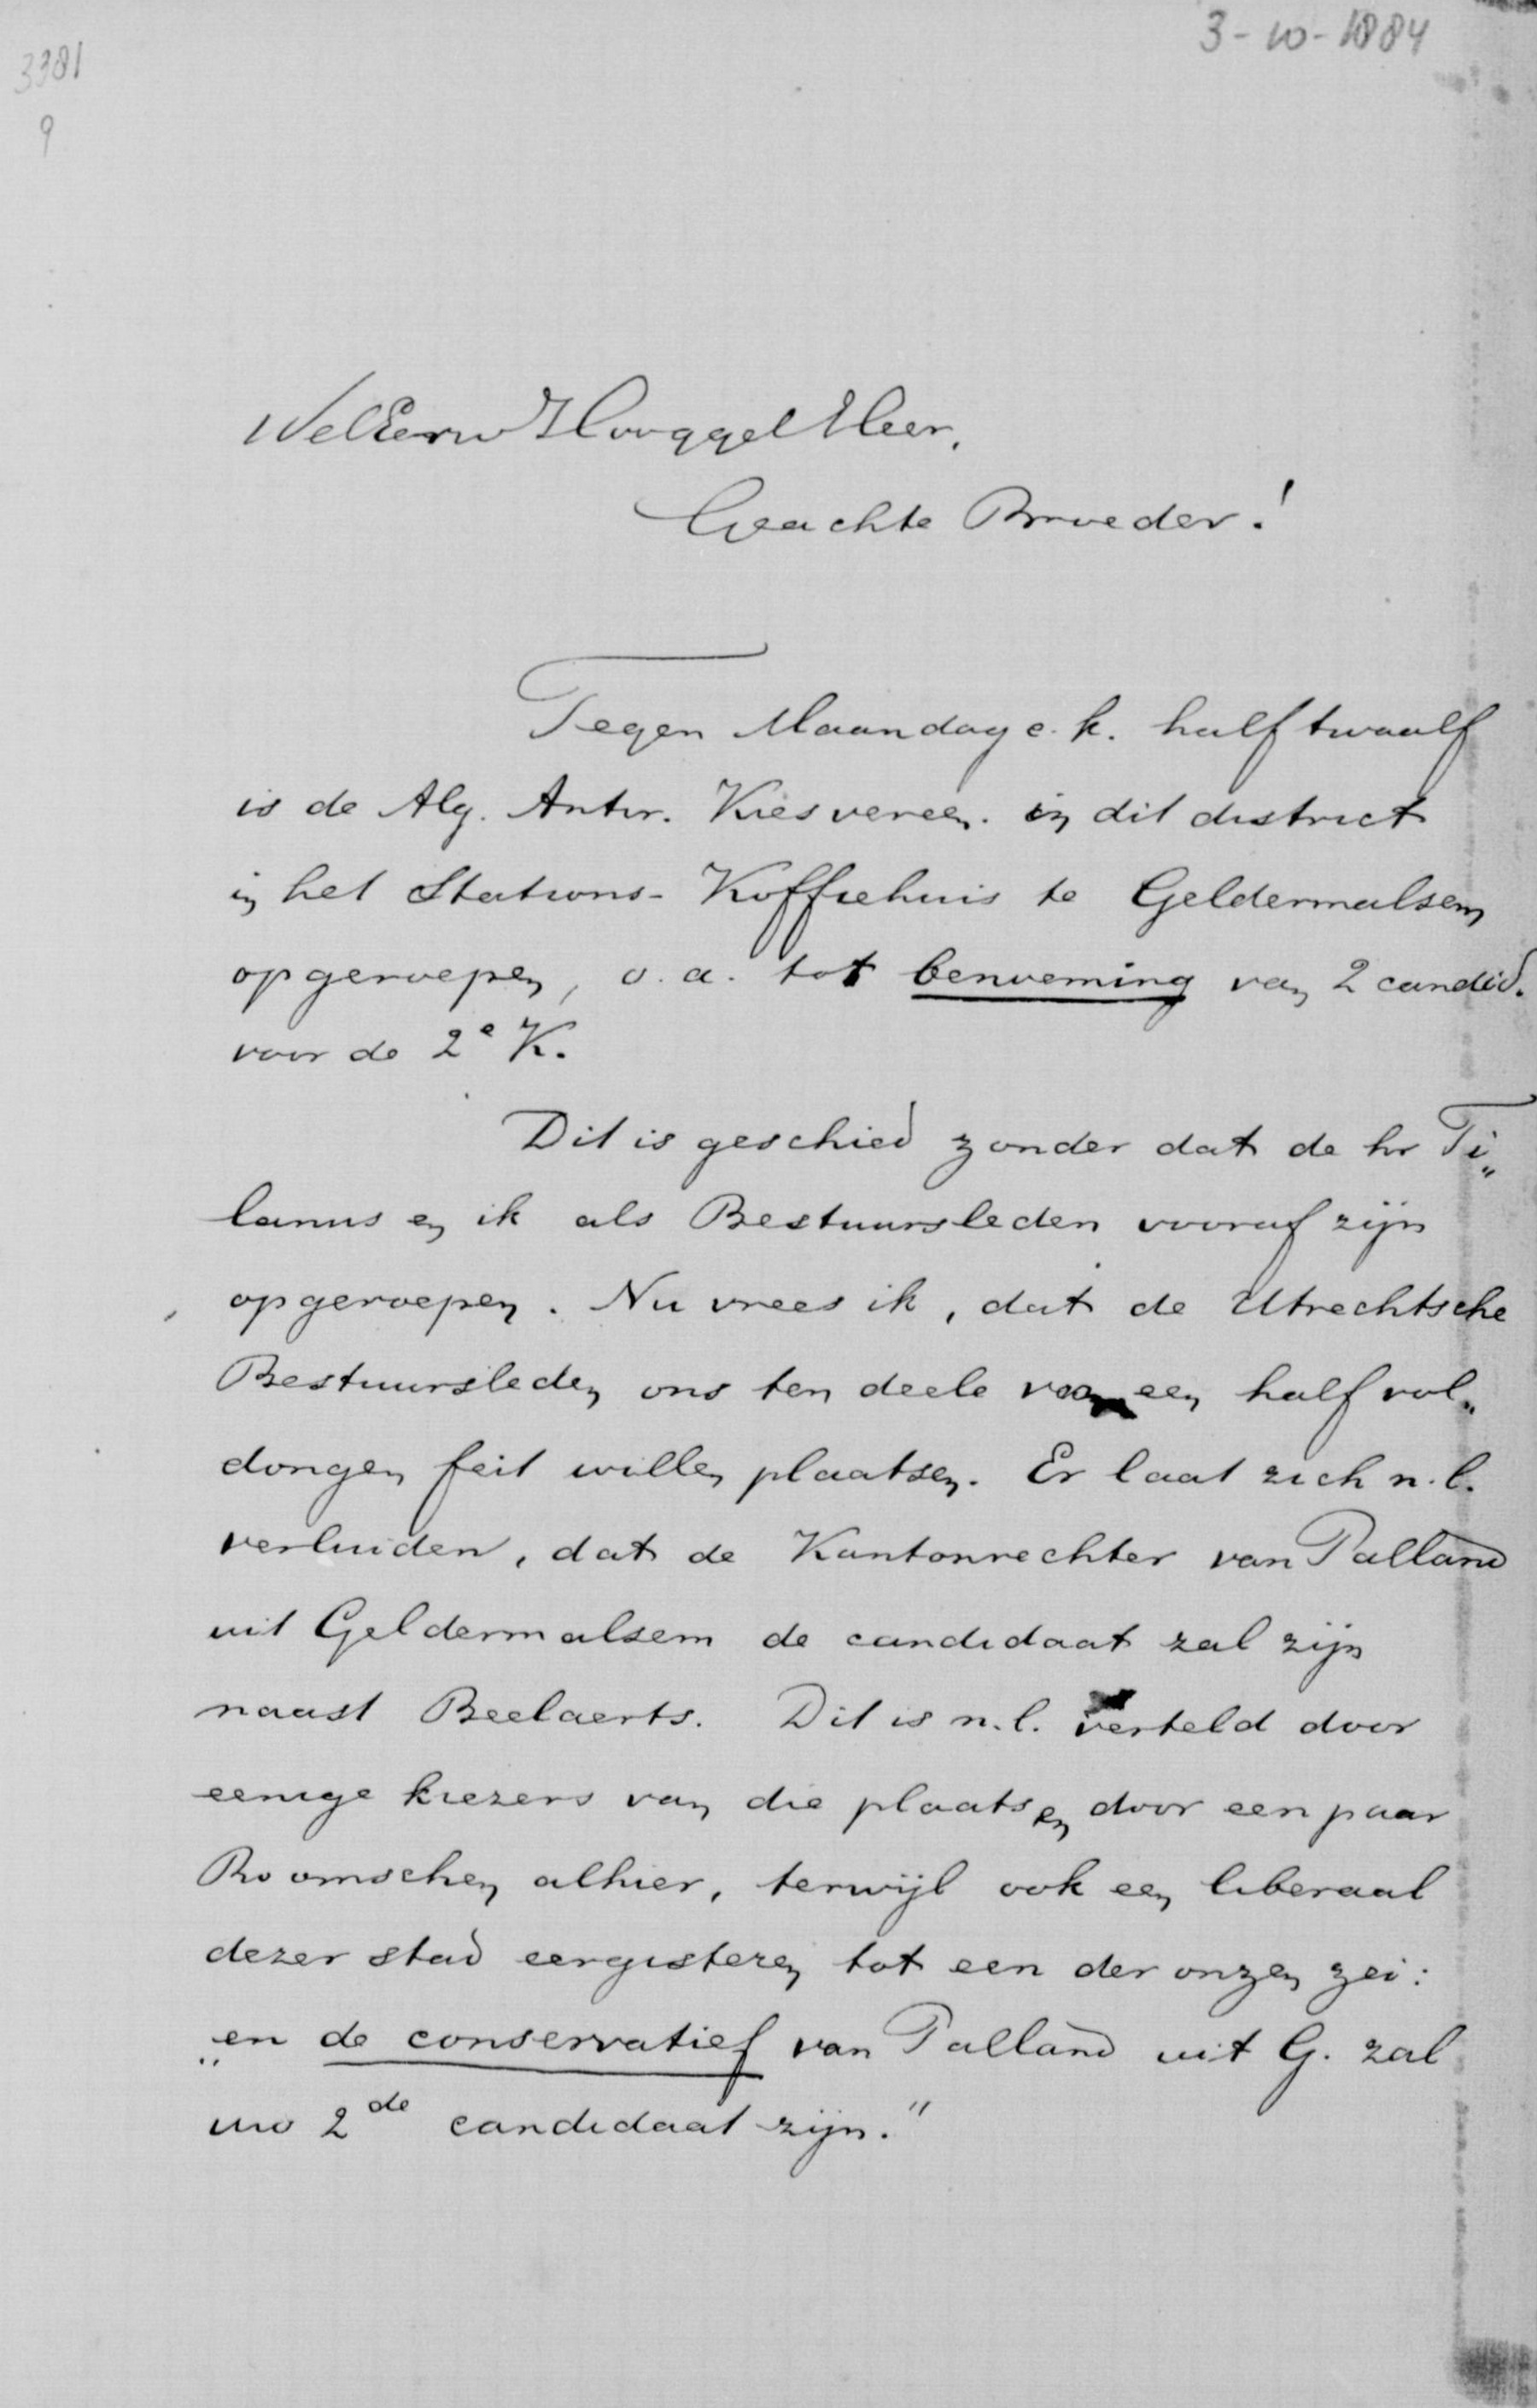 3-10-1884
3381
9
WelEerw HooggelHeer,
Geachte Broeder!
Tegen Maandag e.k. half twaalf
is de Alg. Antir. Kiesvereen. in dit district
in het Stations-Koffiehuis te Geldermalsen
opgeroepen, o.a. tot benoeming van 2 candid.
voor de 2e K.
Dit is geschied zonder dat de hr Ti„
lanus en ik als Bestuursleden vooraf zijn
opgeroepen. Nu vrees ik, dat de Utrechtsche
Bestuursleden ons ten deele voor een half vol„
dongen feit willen plaatsen. Er laat zich n.l.
verluiden, dat de Kantonrechter van Palland
uit Geldermalsem de candidaat zal zijn
naast Beelaerts. Dit is n.l. verteld door
eenige kiezers van die plaats en door een paar
Roomschen alhier, terwijl ook een liberaal
dezer stad eergisteren tot een der onzen zei:
„en de conservatief van Palland uit G. zal
uw 2de candidaat zijn."